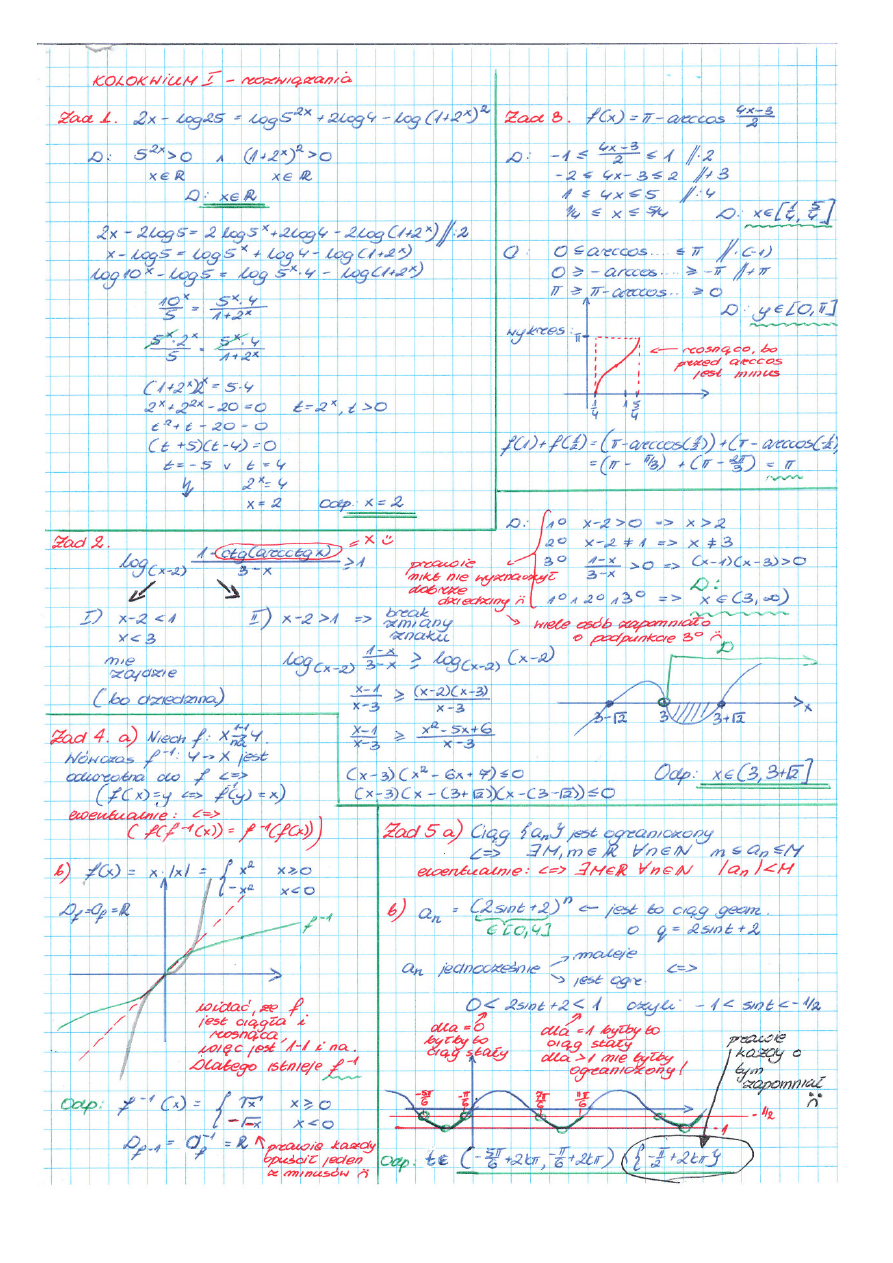 KOLOKWIUM I – rozwiązania
Zad 1. 2x - log25 = log5^{2x} + 2log4 - log(1+2^x)^2
D: 5^{2x}>0 ∧ (1+2^x)^2>0
x∈R x∈R
D: x∈R
2x - 2log5 = 2log5^x + 2log4 - 2log(1+2^x) //:2
x - log5 = log5^x + log4 - log(1+2^x)
log10^x - log5 = log5^x·4 - log(1+2^x)
10^x/5 = 5^x·4/(1+2^x)
5^x·2^x/5 = 5^x·4/(1+2^x)
(1+2^x)2^x = 5·4
2^x + 2^{2x} - 20 = 0 t = 2^x, t>0
t^2 + t - 20 - 0
(t+5)(t-4) = 0
t = -5 ∨ t = 4
2^x = 4
x = 2 Odp: x = 2
Zad 3. f(x) = π - arccos (4x-3)/2
D: -1 ≤ (4x-3)/2 ≤ 1 //·2
-2 ≤ 4x-3 ≤ 2 //+3
1 ≤ 4x ≤ 5 //:4
1/4 ≤ x ≤ 5/4 D: x∈[1/4, 5/4]
0 ≤ arccos.... ≤ π //·(-1)
0 ≥ -arccos.... ≥ -π //+π
π ≥ π-arccos... ≥ 0
D: y∈[0,π]
wykres:
π
← rosnąco, bo
przed arccos
jest minus
1/4 1 5/4
f(1)+f(1/2) = (π-arccos(1/2)) + (π-arccos(-1/2))
= (π - π/3) + (π - 2π/3) = π
Zad 2.
log_{(x-2)} (1-ctg(arcctg x))/(3-x) ≥ 1
= x ☺
D: 1° x-2>0 => x>2
2° x-2≠1 => x≠3
3° (1-x)/(3-x) > 0 => (x-1)(x-3)>0
D:
1°∧2°∧3° => x∈(3,∞)
prawie
nikt nie wyznaczył
dobrze
dziedziny ☹
→ wiele osób zapomniało
o podpunkcie 3° ☹
I) x-2<1
x<3
nie
zajdzie
(bo dziedzina)
II) x-2>1 => brak
zmiany
znaku
log_{(x-2)} (1-x)/(3-x) ≥ log_{(x-2)} (x-2)
(x-1)/(x-3) ≥ (x-2)(x-3)/(x-3)
(x-1)/(x-3) ≥ (x^2-5x+6)/(x-3)
(x-3)(x^2-6x+7) ≤ 0
(x-3)(x-(3+√2))(x-(3-√2)) ≤ 0
D
3-√2 3 3+√2 x
Odp: x∈(3, 3+√2]
Zad 4. a) Niech f: X 1-1→na Y.
Wówczas f^{-1}: Y→X jest
odwrotna do f <=>
(f(x)=y <=> f(y)=x)
ewentualnie: <=>
(f(f^{-1}(x)) = f^{-1}(f(x)))
b) f(x) = x·|x| = { x^2 x≥0
-x^2 x<0
f^{-1}
widać, że f
jest ciągła i
rosnąca,
więc jest 1-1 i na.
Dlatego istnieje f^{-1}
Odp: f^{-1}(x) = { √x x≥0
-√-x x<0
↖ prawie każdy
opuścił jeden
z minusów ☹
Zad 5 a) Ciąg {a_n} jest ograniczony
<=> ∃M,m∈R ∀n∈N m≤a_n≤M
ewentualnie: <=> ∃M∈R ∀n∈N |a_n|<M
b) a_n = (2sint+2)^n ← jest to ciąg geom.
∈[0,4] o q = 2sint+2
a_n jednocześnie → maleje
→ jest ogr. <=>
0 < 2sint+2 < 1 czyli -1 < sint < -1/2
dla =0
byłby to
ciąg stały
dla =1 byłby to
ciąg stały
dla >1 nie byłby
ograniczony!
prawie
każdy o
tym
zapomniał
☹
-5π/6 -π/6 7π/6 11π/6
-1/2
-1
Odp: t∈(-5π/6+2kπ, -π/6+2kπ) \ {-π/2+2kπ}